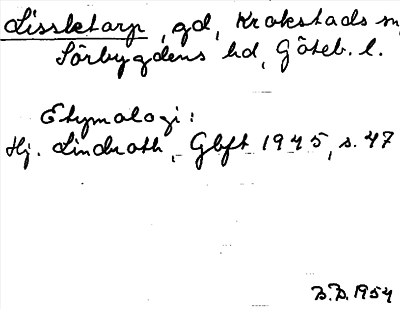 Lissletorp, gd, Krokstads sn,
Sörbygdens hd, Göteb. l.
Etymologi:
Hj. Lindroth, Gbft 1945, s. 47
B.D. 1954